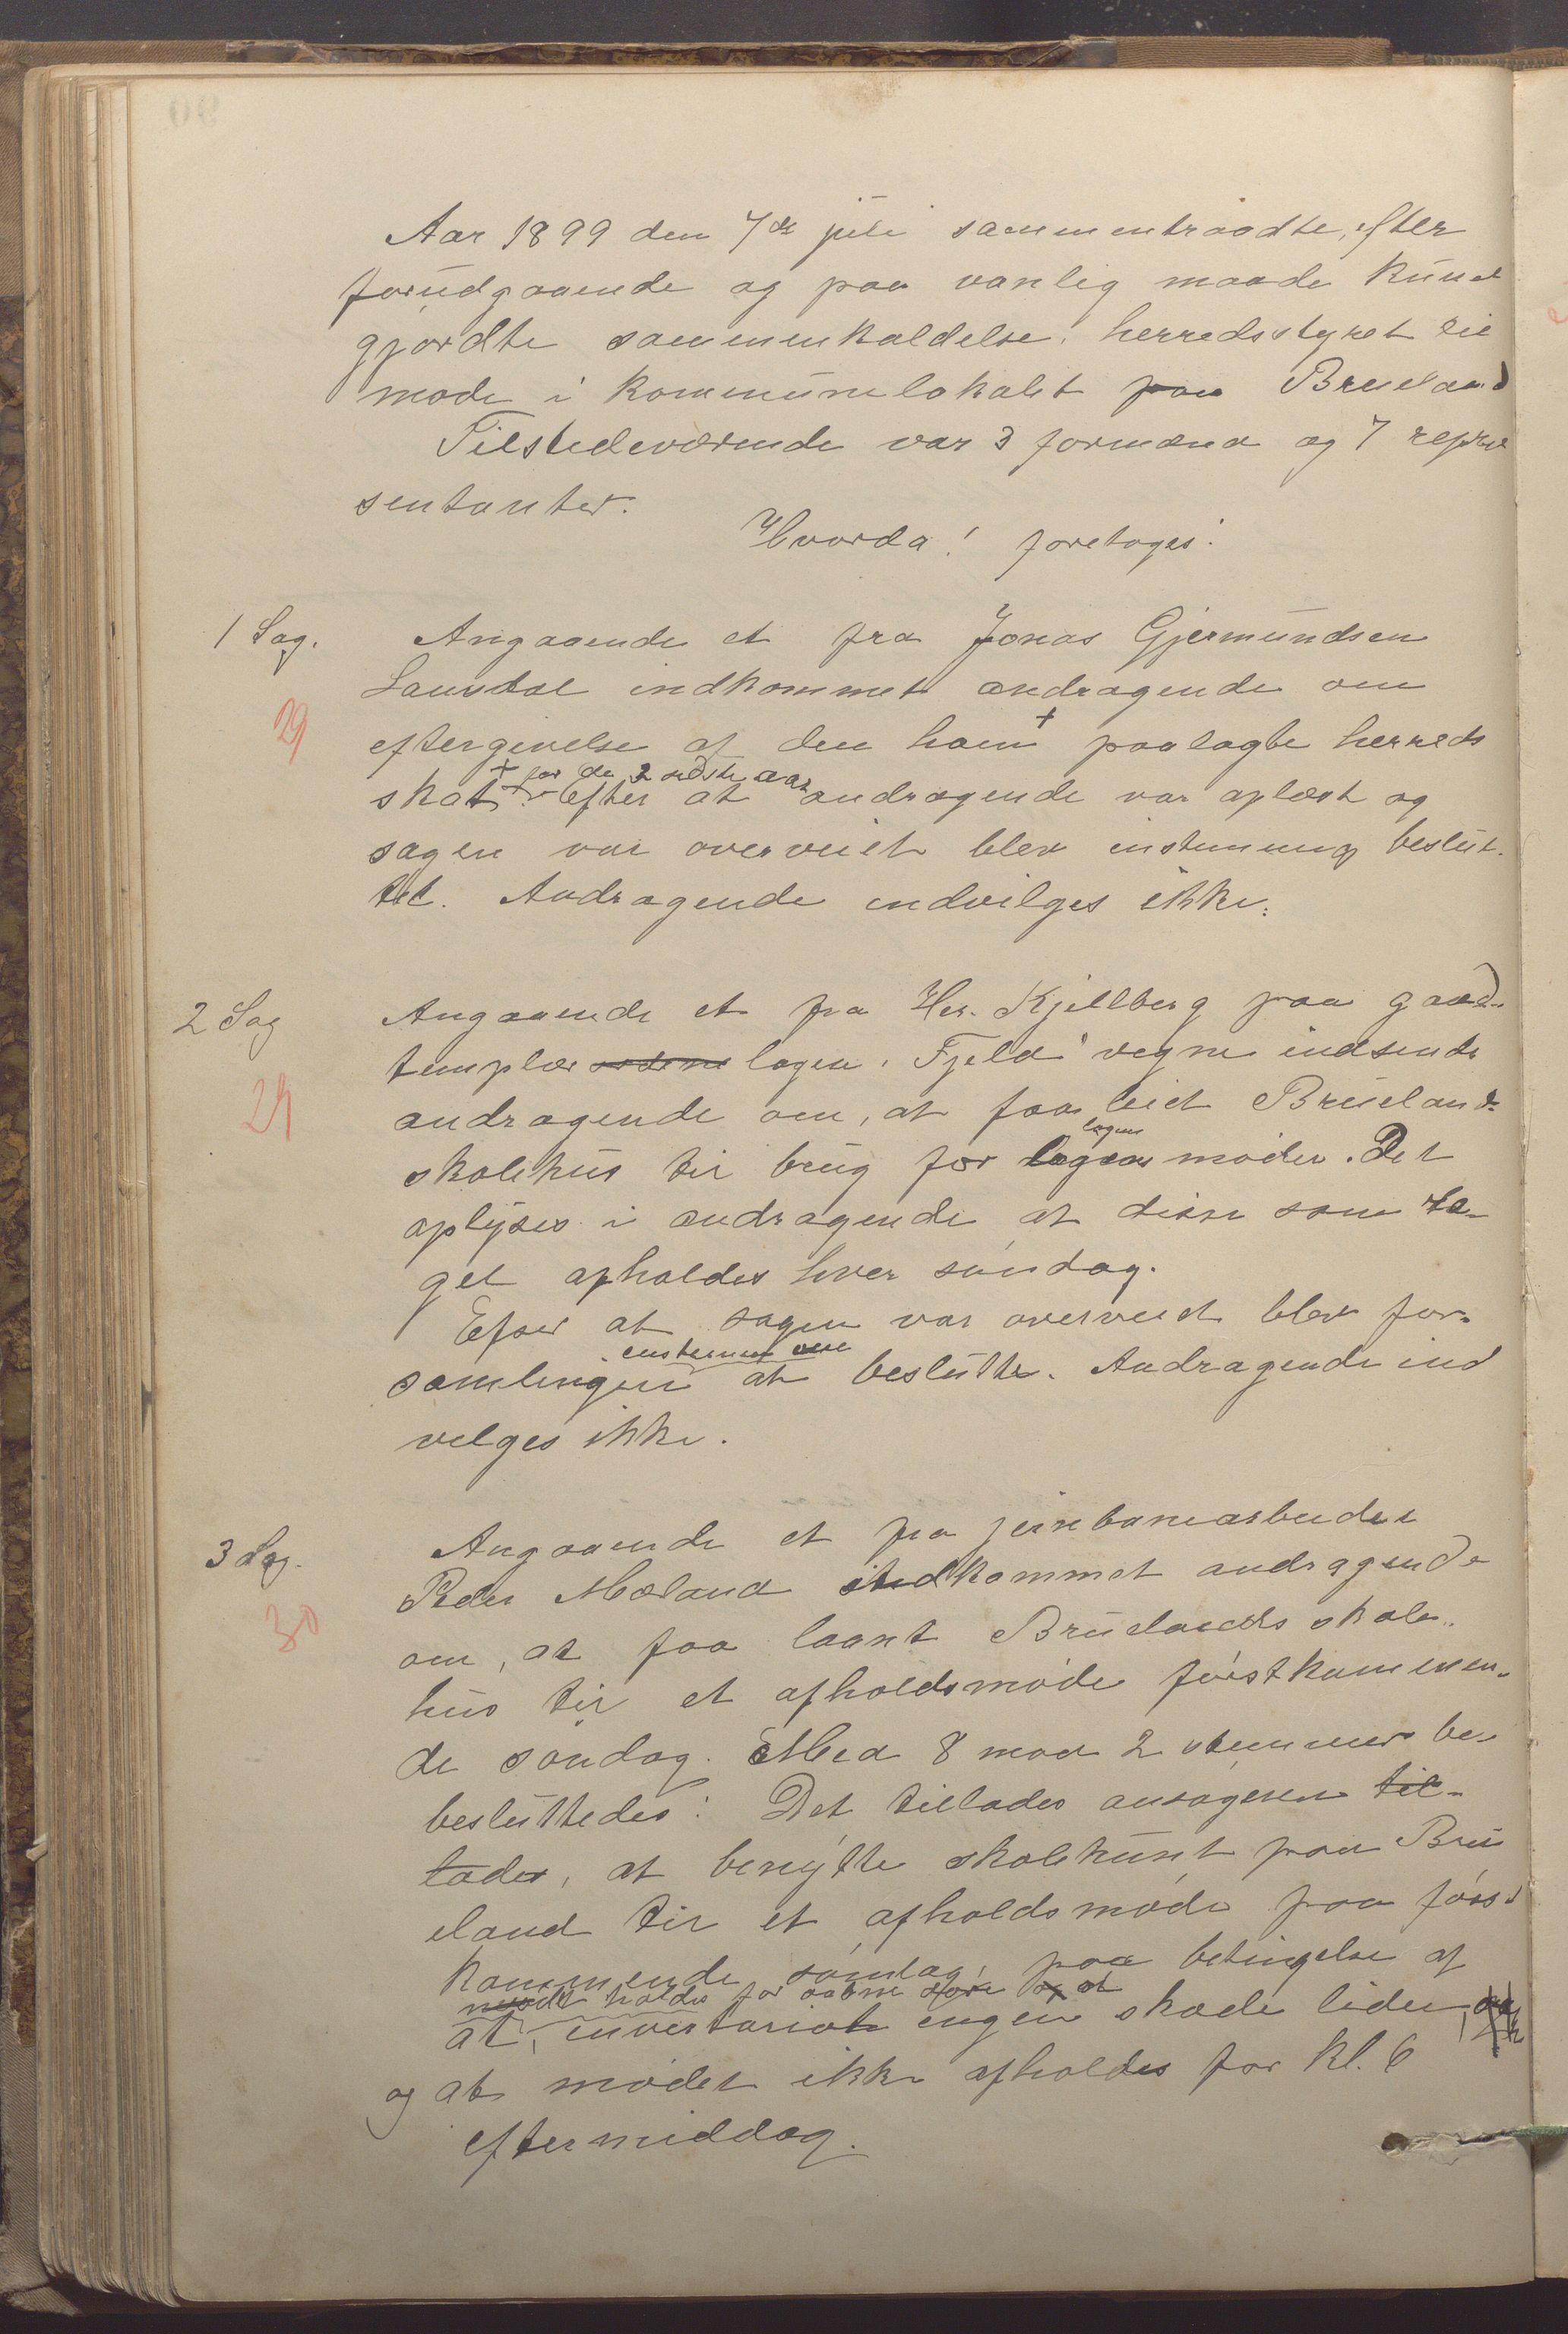 Aar 1899 den 7de juli sammentraadte, efter
forudgaaende og paa vanlig maade kund
gjordte sammenkaldelse, herredsstyret til
møde i kommunelokalet paa Brueland
Tilstedeværende var 3 formænd og 7 repræ
sentanter.
Hvorda! foretages:
1 Sag.
Angaaende et fra Jonas Gjermundsen
indkommet andragende om
29
eftergivelse af den ham + paalagte herreds
+ for de 2 sidste aar
skat. Efter at andragende var oplæst og
sagen var overveiet blev enstemmig beslut-
tet. Andragende indvilges ikke.
2 Sag
Angaaende et fra Hr. Kjellberg paa good-
templar logen "Fjeld" vegne indsendt
29
andragende om, at faa leiet Bruelands
logens
skolehus til brug for møder. Det
oplyses i andragende at disse som re-
gel afholdes hver søndag.
Efter at sagen var overveiet blev for-
enstemmig om
samlingen at beslutte. Andragende ind
velges ikke.
3 Sag.
Angaaende et fra jernbanearbeider
Peder Mæland indkommet andragende
30
om, at faa laant Bruelands skole-
hus til et afholdsmøde førstkommen-
de søndag. Med 8 mod 2 stemmer be-
besluttedes: Det tillades ansøgeren til-
lades, at benytte skolehuset paa Bru
eland til et afholdsmøde paa først
kommende søndag, paa betingelse af
mødet holdes for aabne døre og at
at, inventariet ingen skade lider,
og at mødet ikke afholdes før kl. 6
eftermiddag.